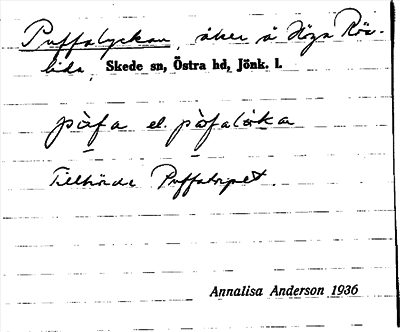 Puffalyckan, åker å Höga Rös-
lida, Skede sn, Östra hd, Jönk. l.
pàfa el. pàfalöka
Tillhörde Puffatorpet.
Annalisa Anderson 1936